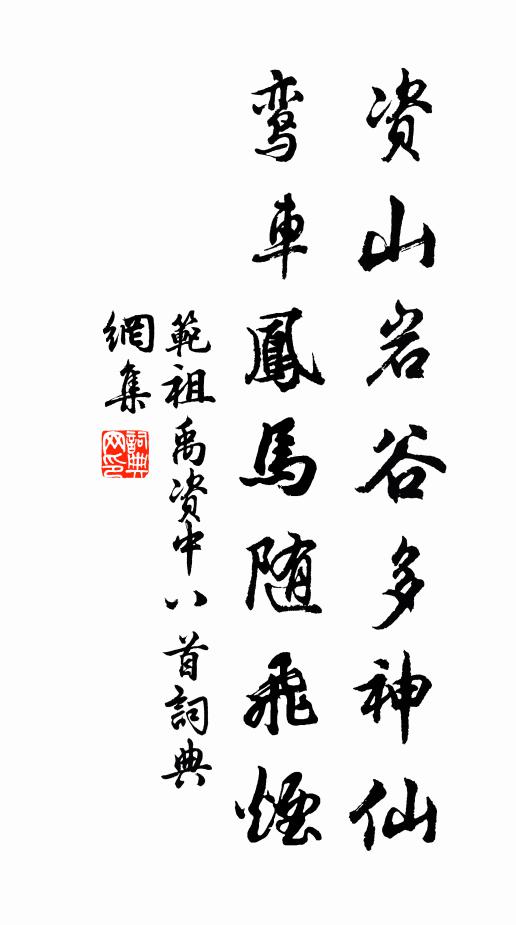 资山岩谷多神仙
鸾車鳳馬随飛煙
範祖禹资中八首詞典
網集
詞典
网印